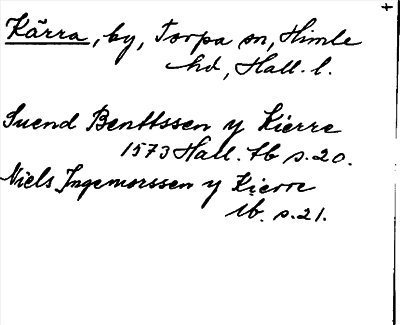 Kärra, by, Torpa sn, Himle
hd, Hall. l.
Suend Benttssen y Kierre
1573 Hall. tb s. 20.
Niels Ingemorssen y Kierre
ib. s. 21.